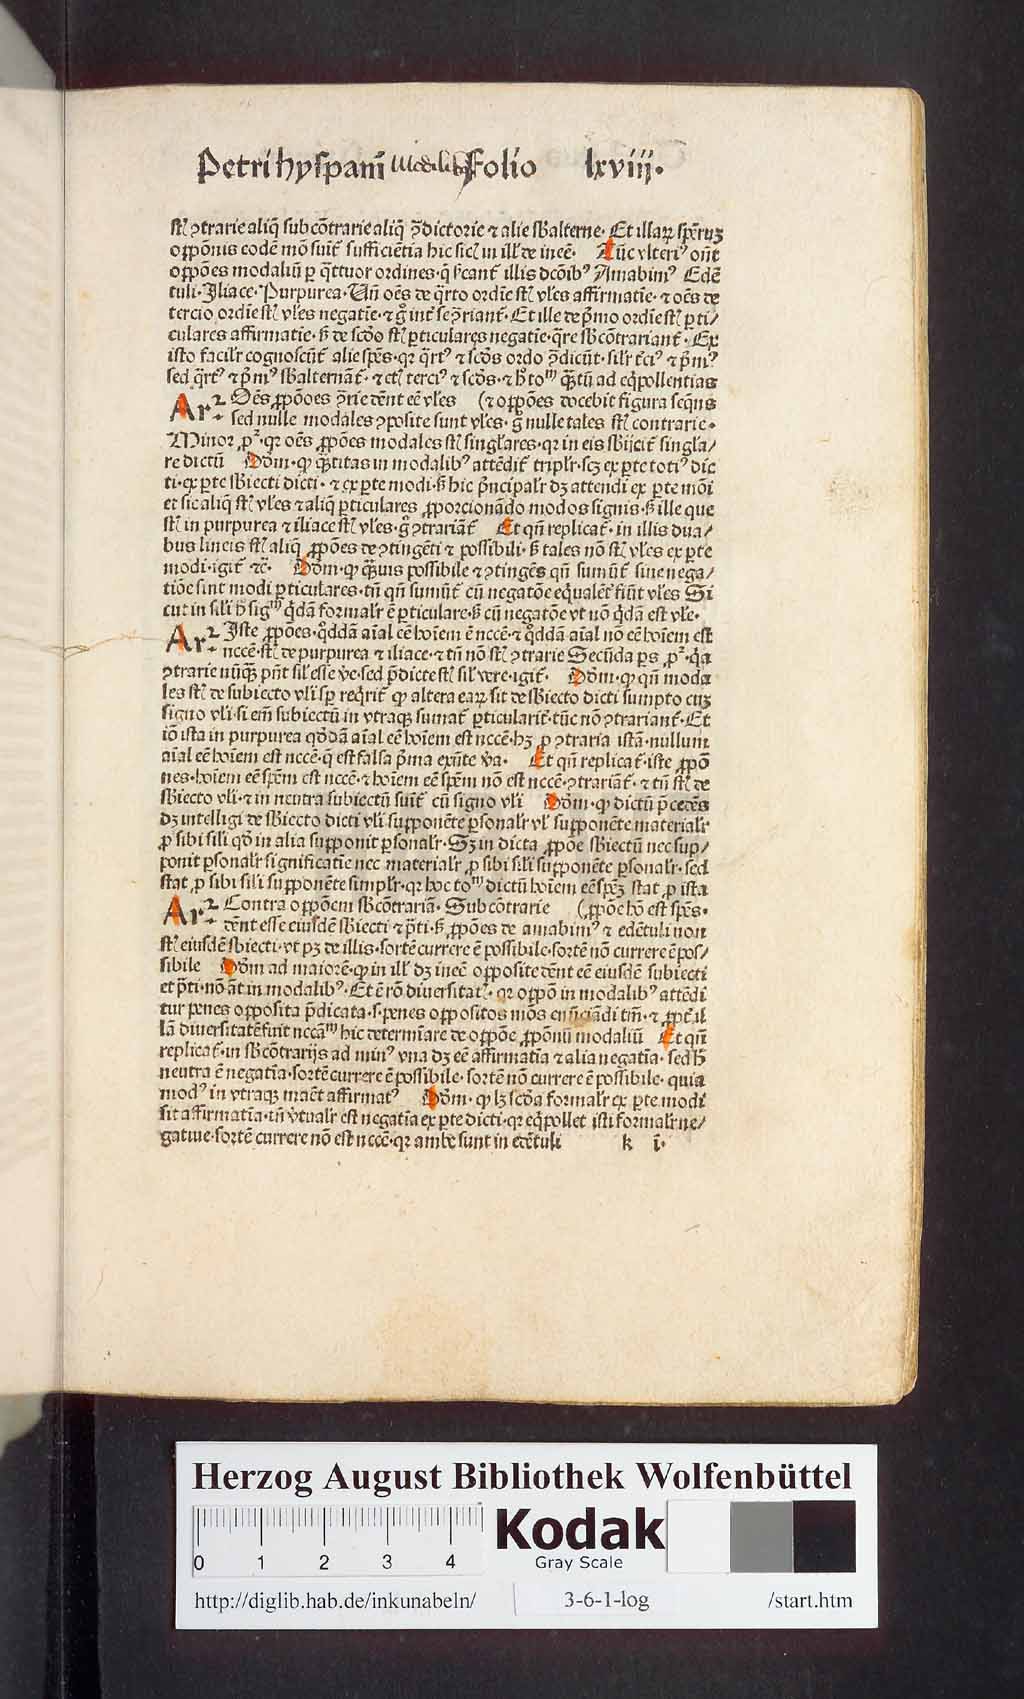 Petri hyspani Folio lxviij.
st̄ ꝯtrarie aliq̄ sub cōtrarie aliq̄ ꝯ̄dictorie ⁊ alie sb̄alterne. Et illaꝝ
oppōnis eodē mō sunt̄ sufficiētia hic sic̄ in ill̓ de ineē. vlteriꝰ
oppōes modaliū ꝑ q̄ttuor ordines. illis Amabimꝰ Edē
tuli. Iliace. Purpurea. oēs de q̄rto ordīe st̄ vl̓es affirmatīe. ⁊ oēs de
tercio ordīe st̄ vl̓es negatīe. ⁊ Et ille de p̄mo ordīe st̄ ꝑti/
culares affirmatīe. de scd̄o st̄ ꝑticulares negatīe. q̄re sb̄contrariant̄. Ex
isto facilr̄ cognoscūt̄ alie q̄rtꝰ ⁊ scd̄s ordo ꝯ̄dicūt̄.
sed q̄rtꝰ ⁊ p̄mꝰ sb̄alternāt̄. ⁊ terciꝰ ⁊ scd̄s. ad eq̄pollentias
Arᷣ Oēs ꝓpōoes ꝯ̄rie dn̄t eē vl̓es (⁊ oppōes docebit figura seq̄ns
sed nulle modales ꝯposite sunt vl̓es. g̊ nulle tales st̄ contrarie.
Minor oēs ꝓpōes modales st̄ singl̓ares. qr in eis sb̄ijcit̄ singla/
re dictū Dōm. ꝙ q̄titas in modalibꝰ attēdit̄ triplr̄. scꝫ ex ꝑte totiꝰ dic
ti. ex ꝑte sb̄iecti dicti. ⁊ ex ꝑte modi. hic p̄ncipalr̄ dꝫ attendi ex ꝑte mōi
et sic aliq̄ st̄ vl̓es ⁊ aliq̄ ꝑticulares ꝓporcionādo modos signis. ille que
st̄ in purpurea ⁊ iliace st̄ vl̓es. g̊ ꝯtrariāt̄ Et qn̄ replicat̄. in illis dua/
bus lineis st̄ aliq̄ ꝓpōes de ꝯtingēti ⁊ possibili. tales nō st̄ vl̓es ex ꝑte
modi. igit̄ ⁊c̄. Dōm. ꝙ q̄uis possibile ⁊ ꝯtingēs qn̄ sumūt̄ sine nega/
tiōe sint modi ꝑticulares. tn̄ qn̄ sumūt̄ cū negatōe vl̓es Si
cut in sil̓i sigᵐ q̄dā formalr̄ ē ꝑticulare. cū negatōe vt nō q̄dā est vl̓e.
Arᷣ Iste ꝓpōes. q̊ddā aīal eē hoīem ē nccē. ⁊ q̊ddā aīal nō eē hoīem est
nccē. st̄ de purpurea ⁊ iliace. ⁊ tn̄ nō st̄ ꝯtrarie Secūda ps
ꝯtrarie nūq̄ pn̄t sil̓ esse sed p̄dicte st̄ sil̓ vere. igit̄. Dōm. ꝙ qn̄ moda
les st̄ de subiecto vl̓i sꝑ reqrit̄ ꝙ altera eaꝝ sit de sb̄iecto dicti sumpto cuꝫ
signo vl̓i. si em̄ subiectū in vtraqꝫ sumat̄ ꝑticularit̄. tūc nō ꝯtrariant̄. Et
iō ista in purpurea q̊ddā aīal eē hoīem est nccē. hꝫ ꝓ ꝯtraria istā. nullum
aīal eē hoīem est nccē. q̄ est falsa p̄ma exn̄te Et qn̄ replicat̄. iste ꝓpō
nes. hoīem eē spēm est nccē ⁊ hoīem eē spēm nō est nccē. ꝯtrariāt̄. ⁊ tn̄ st̄ de
sb̄iecto vl̓i. ⁊ in neutra subiectū sumit̄ cū signo vl̓i Dōm. ꝙ dictū p̄cedēs
dꝫ intelligi de sb̄iecto dicti vl̓i supponēte ꝑsonalr̄ vl̓ supponēte materialr̄
ꝓ sibi sil̓i in alia supponit ꝑsonalr̄. Sꝫ in dicta ꝓpōe sb̄iectū nec sup/
ponit ꝑsonalr̄ significatīe nec materialr̄ ꝓ sibi sil̓i supponēte ꝑsonalr̄. sed
stat ꝓ sibi sil̓i supponēte simplr̄. qr hoc toᵐ dictū hoīem eē spēꝫ stat ꝓ ista
Arᷣ Contra oppōem sb̄cōtrariā. Subcōtrarie (ꝓpōe hō est spēs.
dēnt esse eiusdē sb̄iecti ⁊ p̄ti. ꝓpōes de amabimꝰ ⁊ edētuli non
st̄ eiusdē sb̄iecti. vt pꝫ de illis. sortē currere ē possibile. sortē nō currere ē pos/
sibile Dōm ad maiorē. ꝙ in ill̓ dꝫ ineē opposite dēnt eē eiusdē subiecti
et p̄ti. nō āt in modalibꝰ. Et ē rō diuersitat̓. qr oppō in modalibꝰ attēdi
tur penes opposita p̄dicata. s. penes oppositos mōs enūciādi tm̄. ⁊ ꝓpt̄ il
lā diuersitatē fuit nccāᵐ hic determīare de oppōe ꝓpōnū modaliū Et qn̄
replicat̄. in sb̄cōtrarijs ad minꝰ vna dꝫ eē affirmatīa ⁊ alia negatīa. sed
neutra ē negatīa. sortē currere ē possibile. sortē nō currere ē possibile. quia
modꝰ in vtraqꝫ maēt affirmatꝰ Dōm. ꝙ lꝫ scd̄a formalr̄ ex ꝑte modi
sit affirmatīa. tn̄ v̓tualr̄ est negatīa ex ꝑte dicti. qr eq̄pollet isti formalr̄ ne/
gatiue. sortē currere nō est nccē. qr ambe sunt in edētuli k i.
Herzog August Bibliothek Wolfenbüttel
0 1 2 3 4
Kodak
Gray Scale
http://diglib.hab.de/inkunabeln/ 3-6-1-log /start.htm